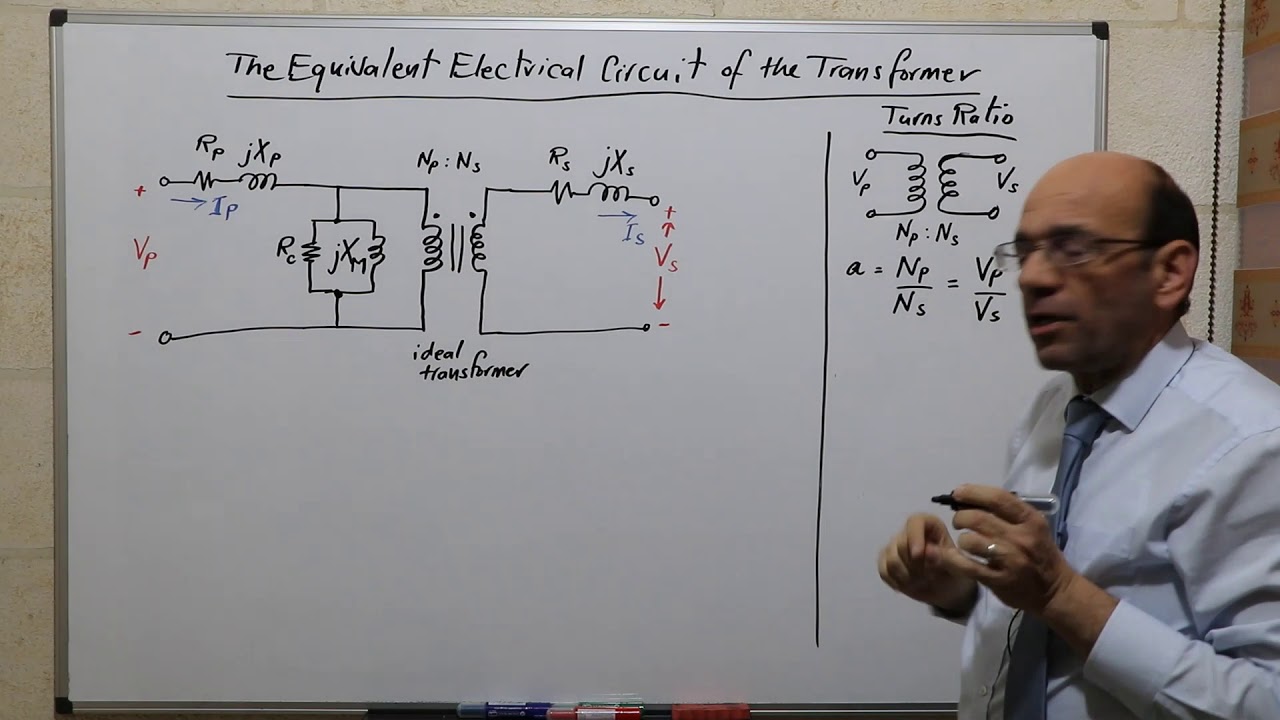 The Equivalent Electrical Circuit of the Transformer
Rp jXp
Np : Ns
Rs jXs
+
Ip
Vp
-
Rc
jXM
Is
+
Vs
-
ideal
transformer
Turns Ratio
Vp
Vs
Np : Ns
a = Np/Ns = Vp/Vs